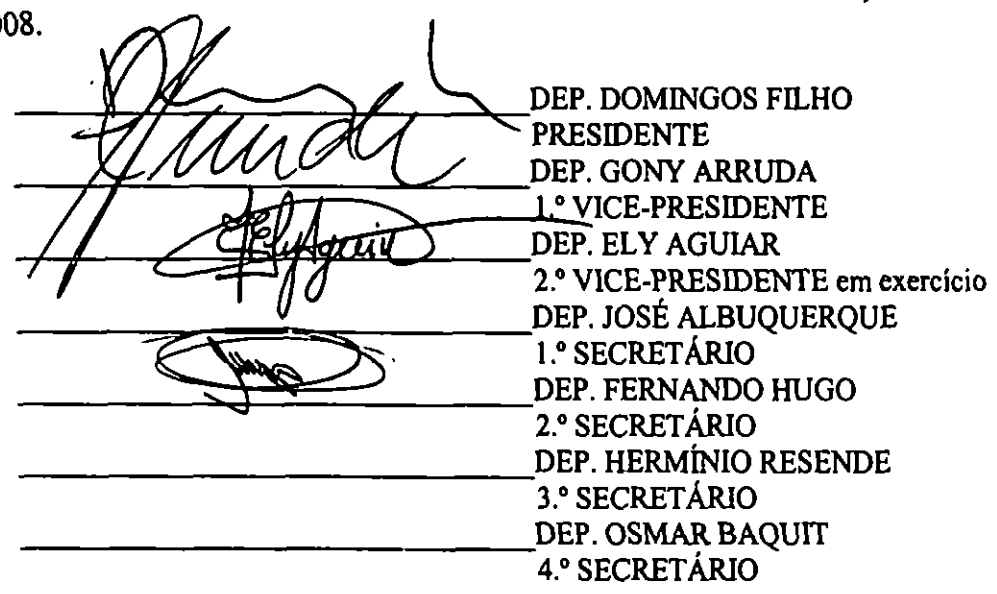 008.
DEP. DOMINGOS FILHO
PRESIDENTE
DEP. GONY ARRUDA
1.º VICE-PRESIDENTE
DEP. ELY AGUIAR
Ely Aguiar
2.º VICE-PRESIDENTE em exercício
DEP. JOSÉ ALBUQUERQUE
1.º SECRETÁRIO
DEP. FERNANDO HUGO
2.º SECRETÁRIO
DEP. HERMÍNIO RESENDE
3.º SECRETÁRIO
DEP. OSMAR BAQUIT
4.º SECRETÁRIO